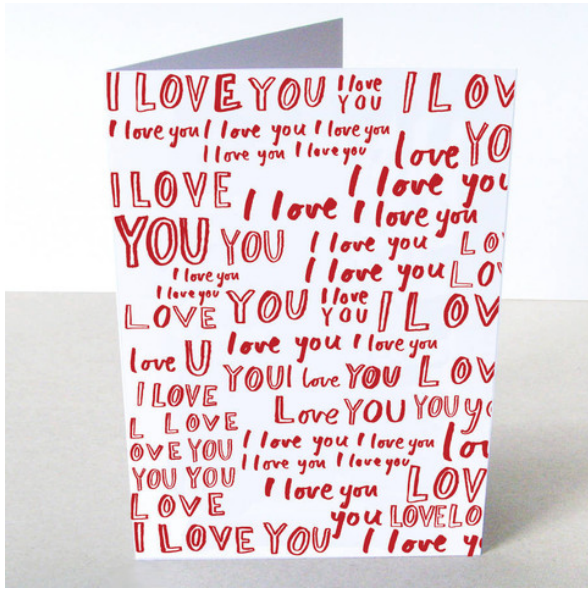 I LOVE YOU I love YOU I LOV
I love you I love you I love you
I love you I love you
love YO
I LOVE I love you
I love I love you
YOU YOU I love you LO
I love you I love you LO
I love you
LOVE YOU I love YOU I LOV
love U love you I love you
YOU I love YOU LOV
I LOVE
Love YOU YOU yo
L LOVE
OVE YOU I love you I love you lo
YOU YOU I love you I love you
I love you LOV
LOVE you LOVE LO
I LOVE YOU I love y